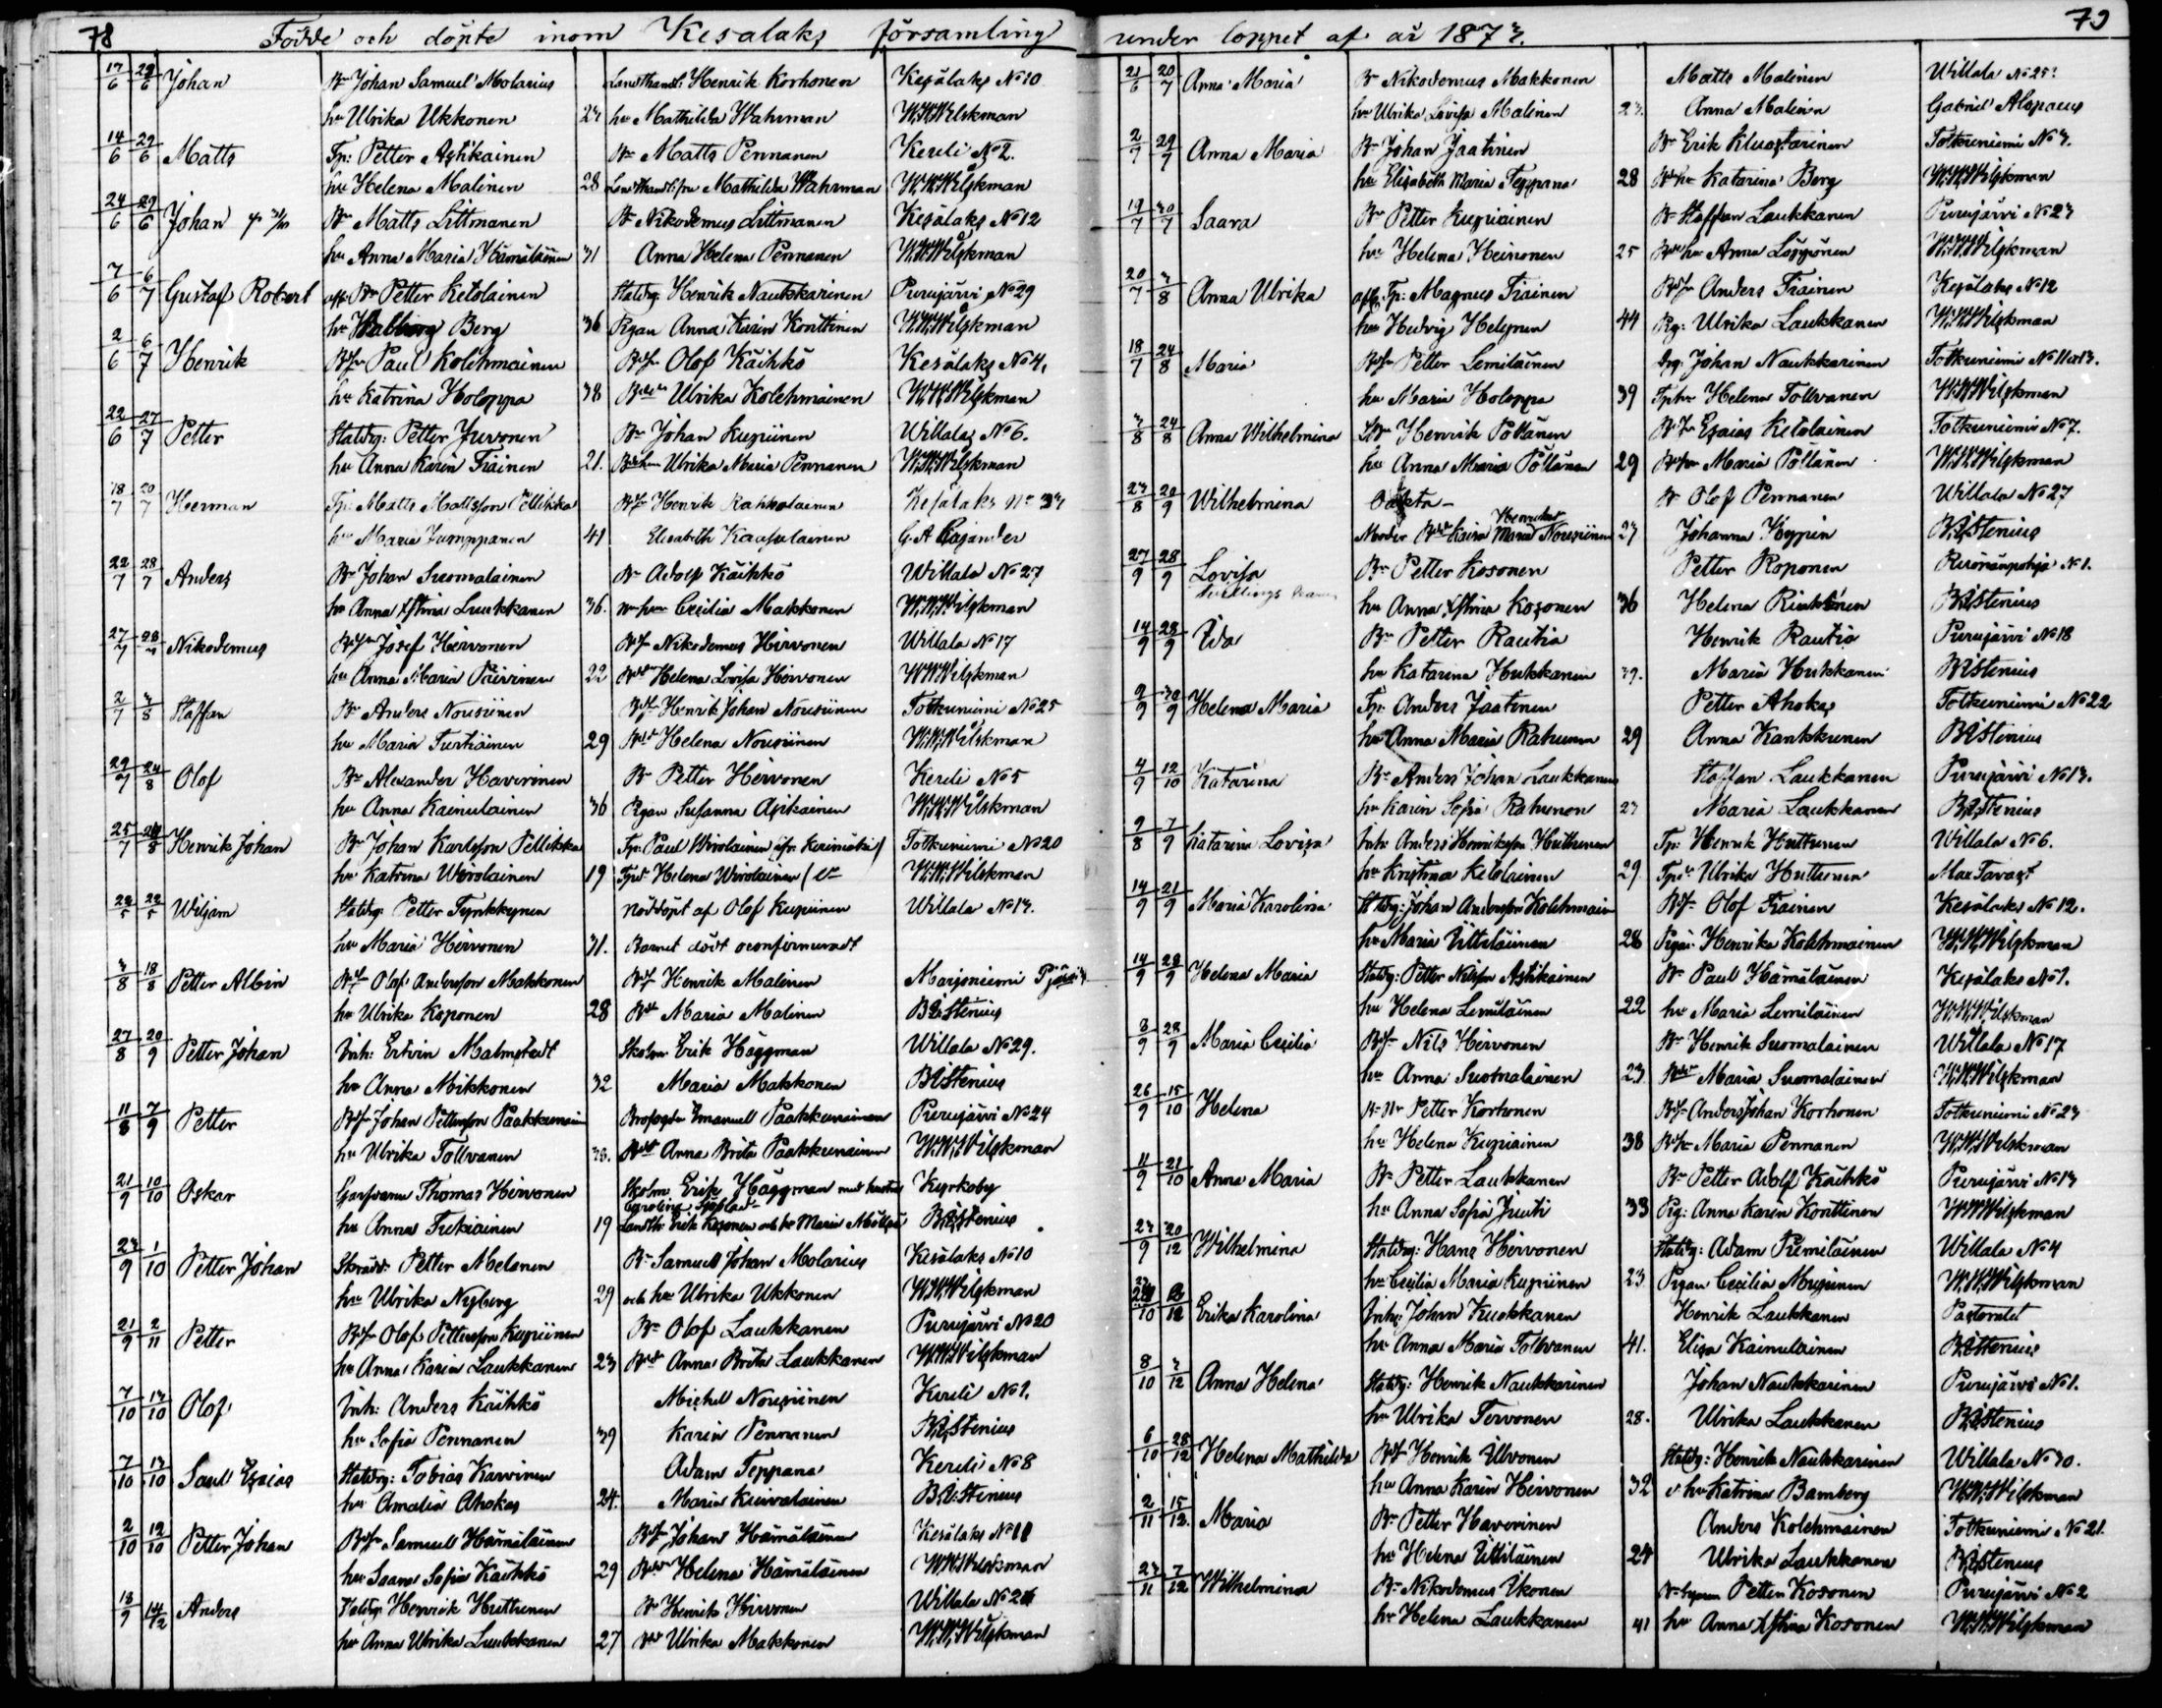 78 Födde och döpte inom Kesälaks församling
17/6 29/6 Johan Bn Johan Samuel Molarius Landthandl: Henrik Korhonen Kesälaks No 10
hu Ulrika Ukkonen 23 hu Mathilda Wahrman W.W.Wilskman
14/6 29/6 Matts Tp: Petter Asikainen Bn Matts Pennanen Kereli No 2.
hu Helena Malinen 28 Landthandl: fru Mathilda Wahrman W.W.Wilskman
24/6 29/6 Johan Bn Matts Littmanen Bn Nikodemus Littmanen Kesälaks No 12
hu Anna Maria Hämäläinen 31 Anna Helena Pennanen W.W.Wilskman
7/6 6/7 Gustaf Robert Bn Petter Ketolainen Statdrg: Henrik Naukkarinen Purujärvi No 29
hu Walborg Berg 36 Pgan Anna Karin Konttinen W.W.Wilskman
2/6 6/7 Henrik Bdsn Paul Kolehmainen Bdsn Olof Käihkö Kesälaks No 4.
hu Katrina Holoppa 38 Ulrika Kolehmainen W.W.Wilskman
22/6 27/7 Petter Statdrg: Petter Juvonen Bn Johan Kupiinen Willala No 6.
hu Anna Karin Tiainen 21. Ulrika Maria Pennanen W.W.Wilskman
18/7 20/7 Herman Tp: Matts Mattsson Pellikka Henrik Kakkolainen Kesälaks No
hu Maria Jumppanen 41 Elisabeth Kaasalainen G. A. Cajander
22/7 28/7 Anders Bn Johan Suomalainen Bn Adolf Käihkö Willala No 27
hu Anna Stina Luukkanen 36. Cecilia Makkonen W.W.Wilskman
27/7 28/7 Nikodemus Bdsn Josef Hirvonen Nikodemus Hirvonen Willala No 17
hu Anna Maria Päivinen 22 Helena Lovisa Hirvonen W.W.Wilskman
2/7 3/8 Staffan Bn Anders Nousiinen Henrik Johan Nousiinen Totkuniemi No 25
hu Maria Turtiainen 29 Helena Nousiinen W.W.Wilskman
29/7 24/8 Olof Bn Alexander Haverinen Bn Petter Hirvonen Kereli No 5
hu Anna Kainulainen 36 Pgan Susanna Asikainen W.W.Wilskman
25/7 24/8 Henrik Johan Bn Johan Karlsson Pellikka Tp: Paul Wirolainen ifr. Kerimäki Totkuniemi No 20
hu Katrina Wirolainen 19 Helena Wirolainen W.W.Wilskman
22/5 22/5 Wiljam Statdrg: Petter Tynkkynen nöddöpt af Olof Kupiinen Willala No 13.
hu Maria Hirvonen 31. Barnet dödt oconfirmeradt
3/8 18/8 Petter Albin Olof Andersson Makkonen Henrik Malinen Marjoniemi
hu Ulrika Koponen 28 Maria Malinen B.Æ.Stenius
27/8 20/9 Petter Johan Inh: Edvin Malmstedt Skolm. Erik Häggman Willala No 29.
hu Anna Mikkonen 32 Maria Makkonen B.Æ.Stenius
11/8 7/9 Petter Johan Pettersson Paakkunain Emanuel Paakkunainen Purujärvi No 24
hu Ulrika Tollvanen Anna Brita Paakkunainen W.W.Wilskman
21/9 10/10 Oskar Garfvaren Thomas Hirvonen Skolm. Erik Häggman med hustru Carolina Kyrkoby
hu Anna Tukiainen 19 Erik Kosonen och hu Maria B.Æ.Stenius
23/9 1/10 Petter Johan Skrädd: Petter Melanen Bn Samuel Johan Molarius Kesälaks No 10
hu Ulrika Nyberg 29 och hu Ulrika Ukkonen W.W.Wilskman
21/9 2/11 Petter Olof Pettersson Kupiinen Bn Olof Laukkanen Purujärvi No 20
hu Anna Karin Laukkanen 23 Anna Brita Laukkanen W.W.Wilskman
7/10 13/10 Olof Inh: Anders Käihkö Michel Nousiinen Kereli No 1.
hu Sofia Pennanen 39 Karin Pennanen B.Æ.Stenius
7/10 13/10 Saul Esaias Statdrg: Tobias Karvinen Adam Teppana Kereli No 8
hu Amalia Ahokas 24. Maria Kuivalainen B.Æ.Stenius
2/10 12/10 Petter Johan Samuel Hämäläinen Johan Hämäläinen Kesälaks No 11
hu Saara Sofia Käihkö 29 Helena Hämäläinen W.W.Wilskman
13/9 14/12 Anders Statdrg: Henrik Huttunen Bn Henrik Hirvonen Willala No
hu Anna Ulrika Luukkanen 27 Ulrika Makkonen W.W.Wilskman
under loppet af år 1873. 79
21/6 20/7 Anna Maria Bn Nikodemus Makkonen Matts Malinen Willala No 25
hu Ulrika Lovisa Malinen 23. Anna Malinen Gabriel Alopaeus
2/7 29/7 Anna Maria Bn Johan Jaatinen Bn Erik Kluastarinen Totkuniemi No 3.
hu Elisabeth Maria Teppana 28 Katarina Berg W.W.Wilskman
19/7 30/7 Saara Bn Petter Kupiainen Bn Staffan Laukkanen Purujärvi No 23
hu Helena Heinonen 25 Anna Löppönen W.W.Wilskman
20/7 3/8 Anna Ulrika Tp: Magnus Tiainen Anders Tiainen Kesälaks No 12
hu Hedvig Helynen 44 Pg: Ulrika Laukkanen W.W.Wilskman
18/7 24/8 Maria Petter Lemiläinen Johan Naukkarinen Totkuniemi
hu Maria Holoppa 39 Helena Tollvanen W.W.Wilskman
3/8 24/8 Anna Wilhelmina Henrik Pöllänen Esaias Ketolainen Totkuniemi No 7.
hu Anna Maria Pöllänen 29 Maria Pöllänen W.W.Wilskman
23/8 20/9 Wilhelmina Oäkta Bn Olof Pennanen Willala No 27
Moder Kaisa Maria Henriksd Nousiinen 27 Johanna Kypin B.Æ.Stenius
27/9 28/9 Lovisa Bn Petter Kosonen Petter Roponen No 1.
hu Anna Stina Kosonen 36 Helena B.Æ.Stenius
14/9 28/9 Ida Bn Petter Rautia Henrik Rautio Purujärvi No 18
hu Katarina Hukkanen 39. Maria Hukkanen B.Æ.Stenius
9/9 30/9 Helena Maria Tp: Anders Jaatinen Petter Ahokas Totkuniemi No 22
hu Anna Maria Ratunen 29 Anna Kankkunen B.Æ.Stenius
4/9 12/10 Katarina Bn Anders Johan Laukkanen Staffan Laukkanen Purujärvi No 13.
hu Karin Sofia Ratunen 27 Maria Laukkanen B.Æ.Stenius
9/8 7/9 Katarina Lovisa Inh: Anders Henriksson Huttunen Tp: Henrik Huttunen Willala No 6.
hu Kristina Ketolainen 29 Ulrika Huttunen Max Tavast
14/9 21/9 Maria Karolina Statdrg: Johan Andersson Kolehmain Olof Tiainen Kesälaks No 12.
hu Maria Uittiläinen 28 Henrika Kolehmainen W.W.Wilskman
14/9 28/9 Helena Maria Statdrg: Petter Nilsson Asikainen Bn Paul Hämäläinen Kesälaks No 1.
hu Helena Lemiläinen 22 hu Maria Lemiläinen W.W.Wilskman
8/9 28/9 Maria Cecilia Nils Hirvonen Bn Henrik Suomalainen Willala No 17
hu Anna Suomalainen 23 Maria Suomalainen W.W.Wilskman
26/9 15/10 Helena Petter Korhonen Anders Johan Korhonen Totkuniemi No 23
hu Helena Kupiainen 38 Maria Pennanen W.W.Wilskman
11/9 21/10 Anna Maria Bn Petter Laukkanen Bn Petter Adolf Käihkö Purujärvi No 13
hu Anna Sofia Juuti 33 Pg: Anna Karin Konttinen W.W.Wilskman
23/9 20/12 Wilhelmina Statdrg: Hans Hirvonen Statdrg: Adam Willala No 4
hu Cecilia Maria Kupiinen 23 Pgan Cecilia W.W.Wilskman
Erika Karolina Inh: Johan Kuokkanen Henrik Laukkanen Pastoratet
hu Anna Maria Tollvanen 41. Elisa Kainulainen B.Æ.Stenius
8/10 3/12 Anna Helena Statdrg: Henrik Naukkarinen Johan Naukkarinen Purujärvi No 1.
hu Ulrika Tervonen 28. Ulrika Laukkanen B.Æ.Stenius
6/10 28/12 Helena Mathilda Henrik Ulvonen Statdrg: Henrik Naukkarinen Willala No 30.
hu Anna Karin Hirvonen 32 o hu Katrina Bamberg W.W.Wilskman
2/11 15/12. Maria Bn Petter Haverinen Anders Kolehmainen Totkuniemi No 21.
hu Helena Uittiläinen 24 Ulrika Laukkanen B.Æ.Stenius
23/11 7/12 Wilhelmina Bn Nikodemus Ikonen Petter Kosonen Purujärvi No 2
hu Helena Laukkanen 41 hu Anna Stina Kosonen W.W.Wilskman